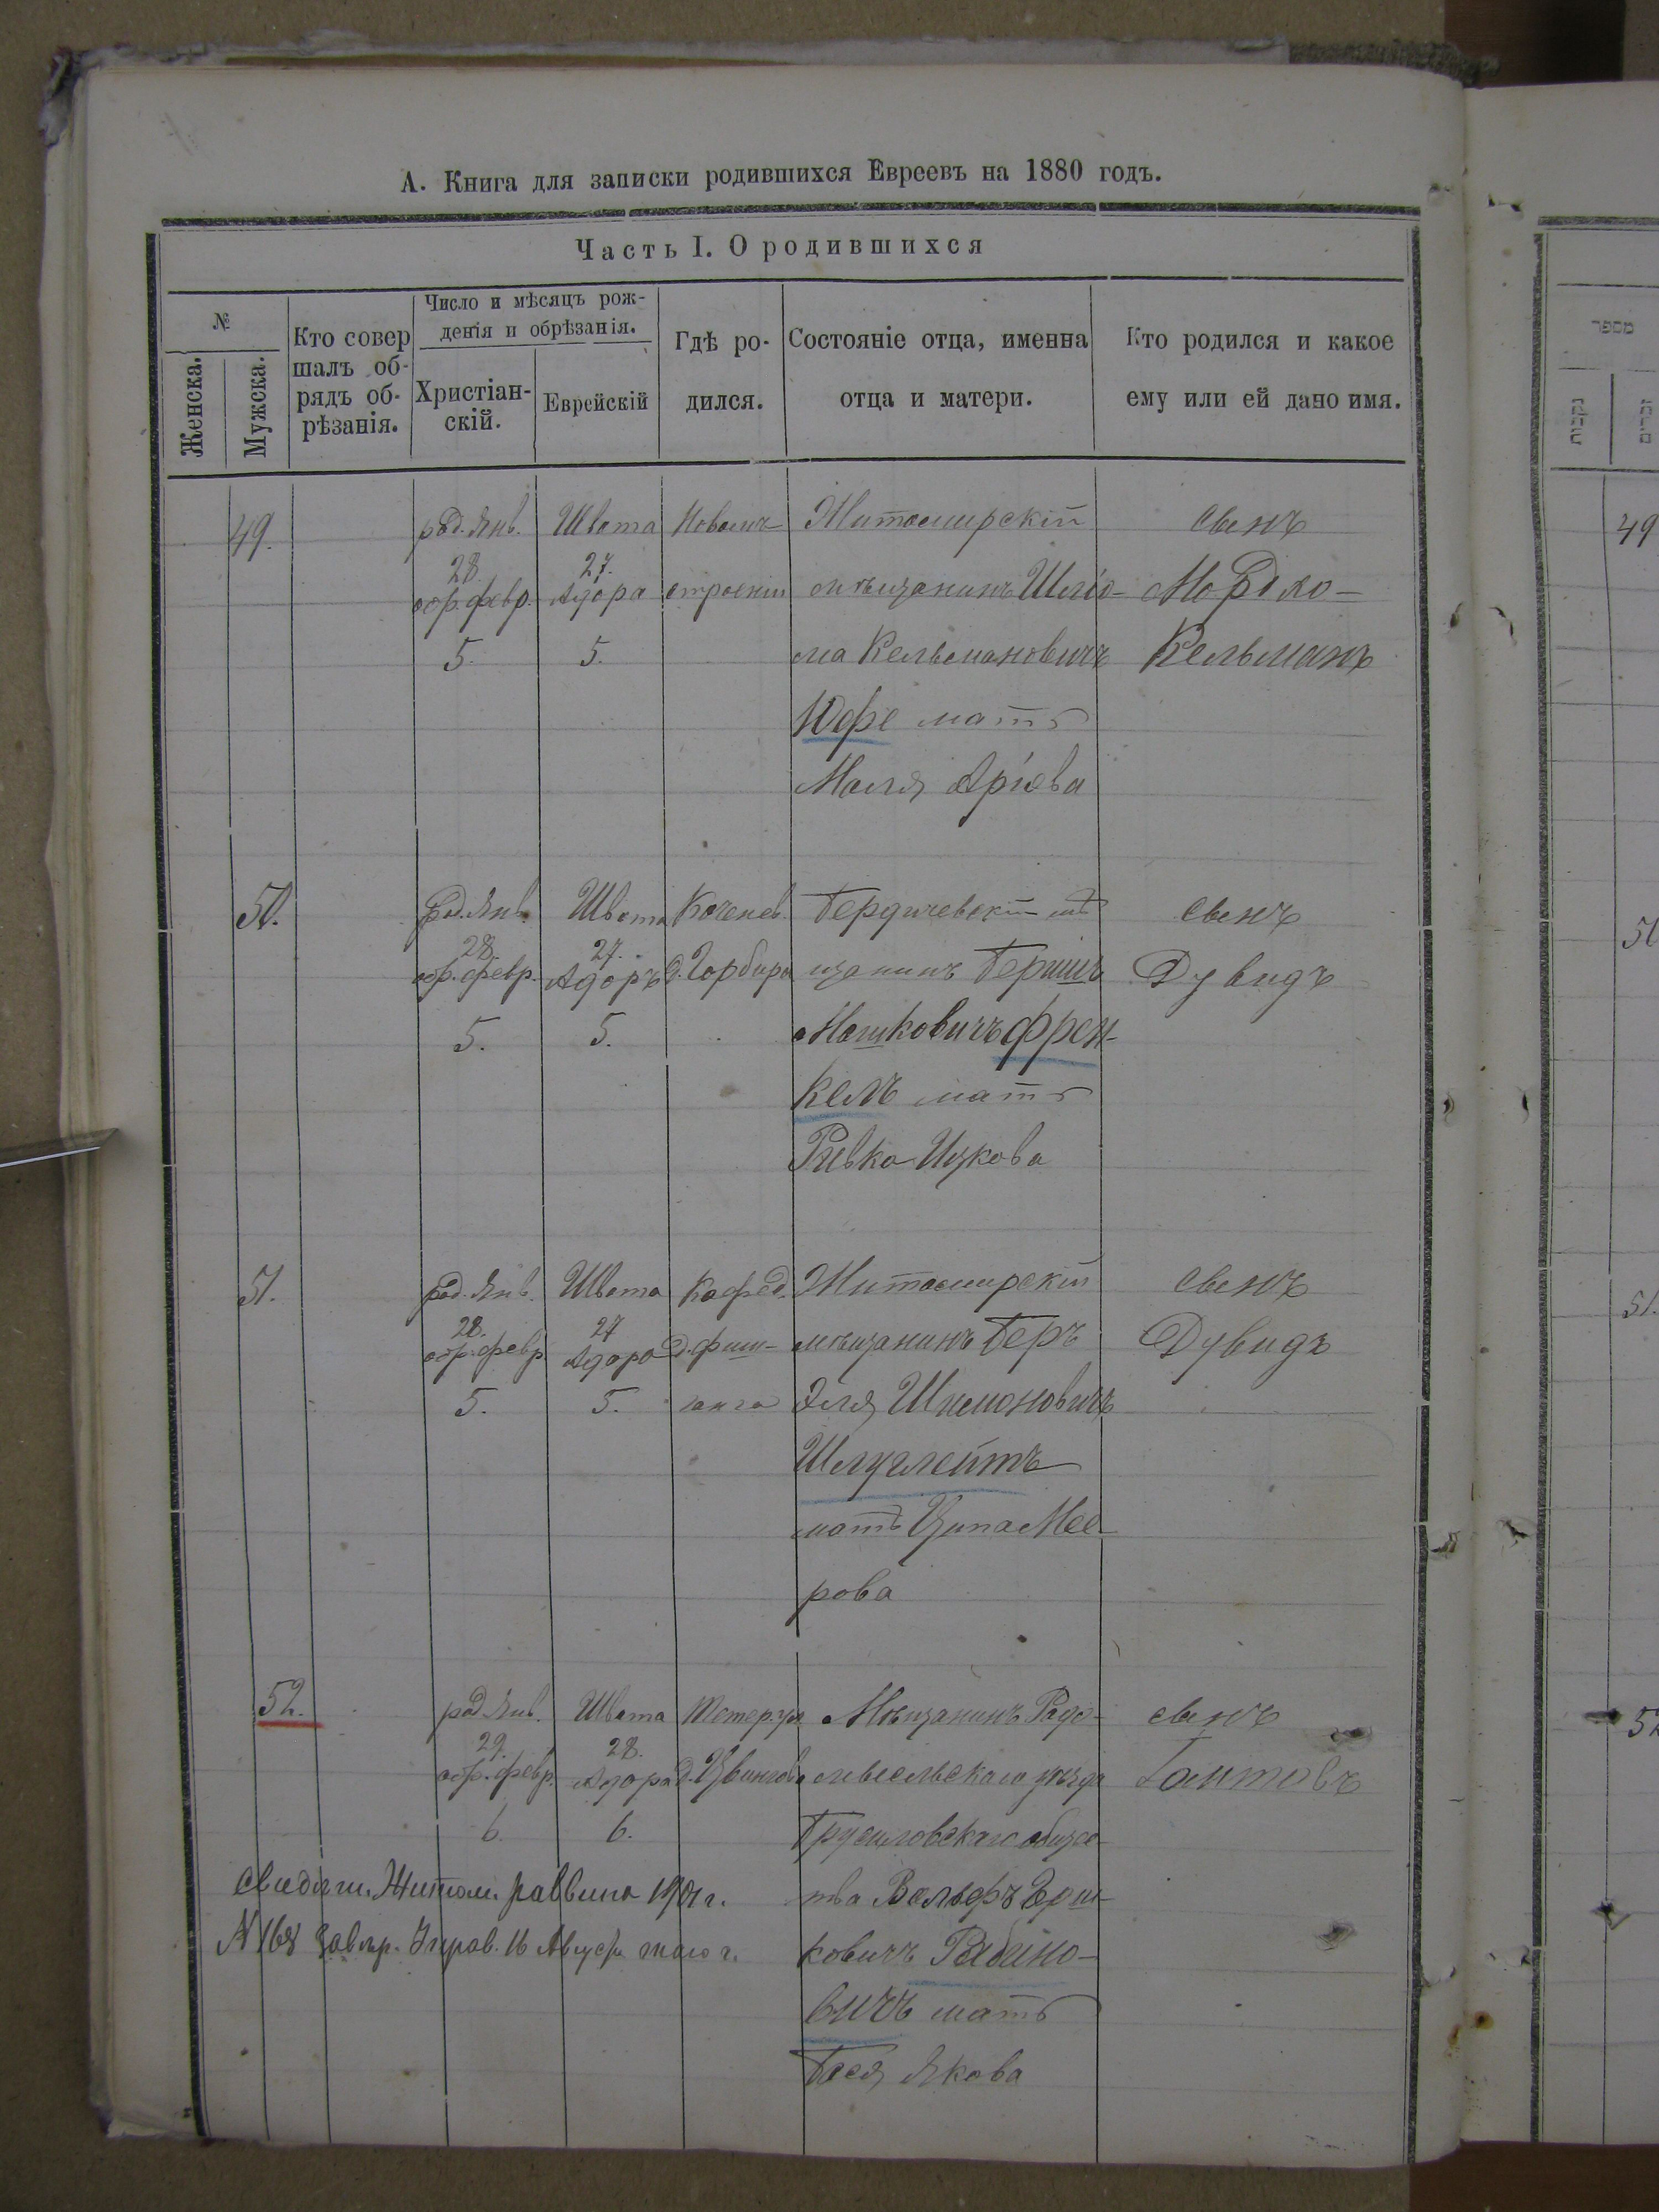 А. Книга для записки родившихся Евреевъ на 1880 годъ.
Часть I. О родившихся
№
Женска.
Мужска.
Кто совер
шалъ об-
рядъ об-
рѣзанія.
Число и мѣсяцъ рож-
денія и обрѣзанія.
Христіан-
скій.
Еврейскій
Гдѣ ро-
дился.
Состояніе отца, именна
отца и матери.
Кто родился и какое
ему или ей дано имя.
49.
род. Янв.
28.
обр. февр.
5.
Швата
27.
Адора
5.
Новому
строеніи
Житомирскій
мѣщанинъ Шліо-
ма Кельмановичъ
Юфе мать
Маля Аріева
свенъ
Мордко-
Кельманъ
50.
род. Янв.
28.
обр. февр.
5.
Швата
27.
Адоръ
5.
Коченев.
д. Горбира
Бердичевскій мѣ
щанинъ Бершъ
Мошковичъ Френ-
кель мать
Ривка Ицкова
свенъ
Дувидъ
51.
род. Янв.
28.
обр. февр.
5.
Швата
27
Адора
5.
Кафед.
д. Фиш-
манга
Житомирскій
мѣщанинъ Беръ
Эля Шимоновичъ
мать Ципа Мее-
рова
свенъ
Дувидъ
52.
род. Янв.
29.
обр. февр.
6.
Швата
28.
Адора
6.
Мѣщанинъ Радо-
мысльскаго уѣзда
Брусиловскаго общес-
тва Вольфъ Эрш-
ковичъ Рабино-
вичъ мать
Бася Якова
свенъ
Свидѣт. Житом. раввина 1901 г.
N 168 Завѣр. Управ. 16 Августа того г.
מספר
נקבות
זכרים
49
50
51.
52